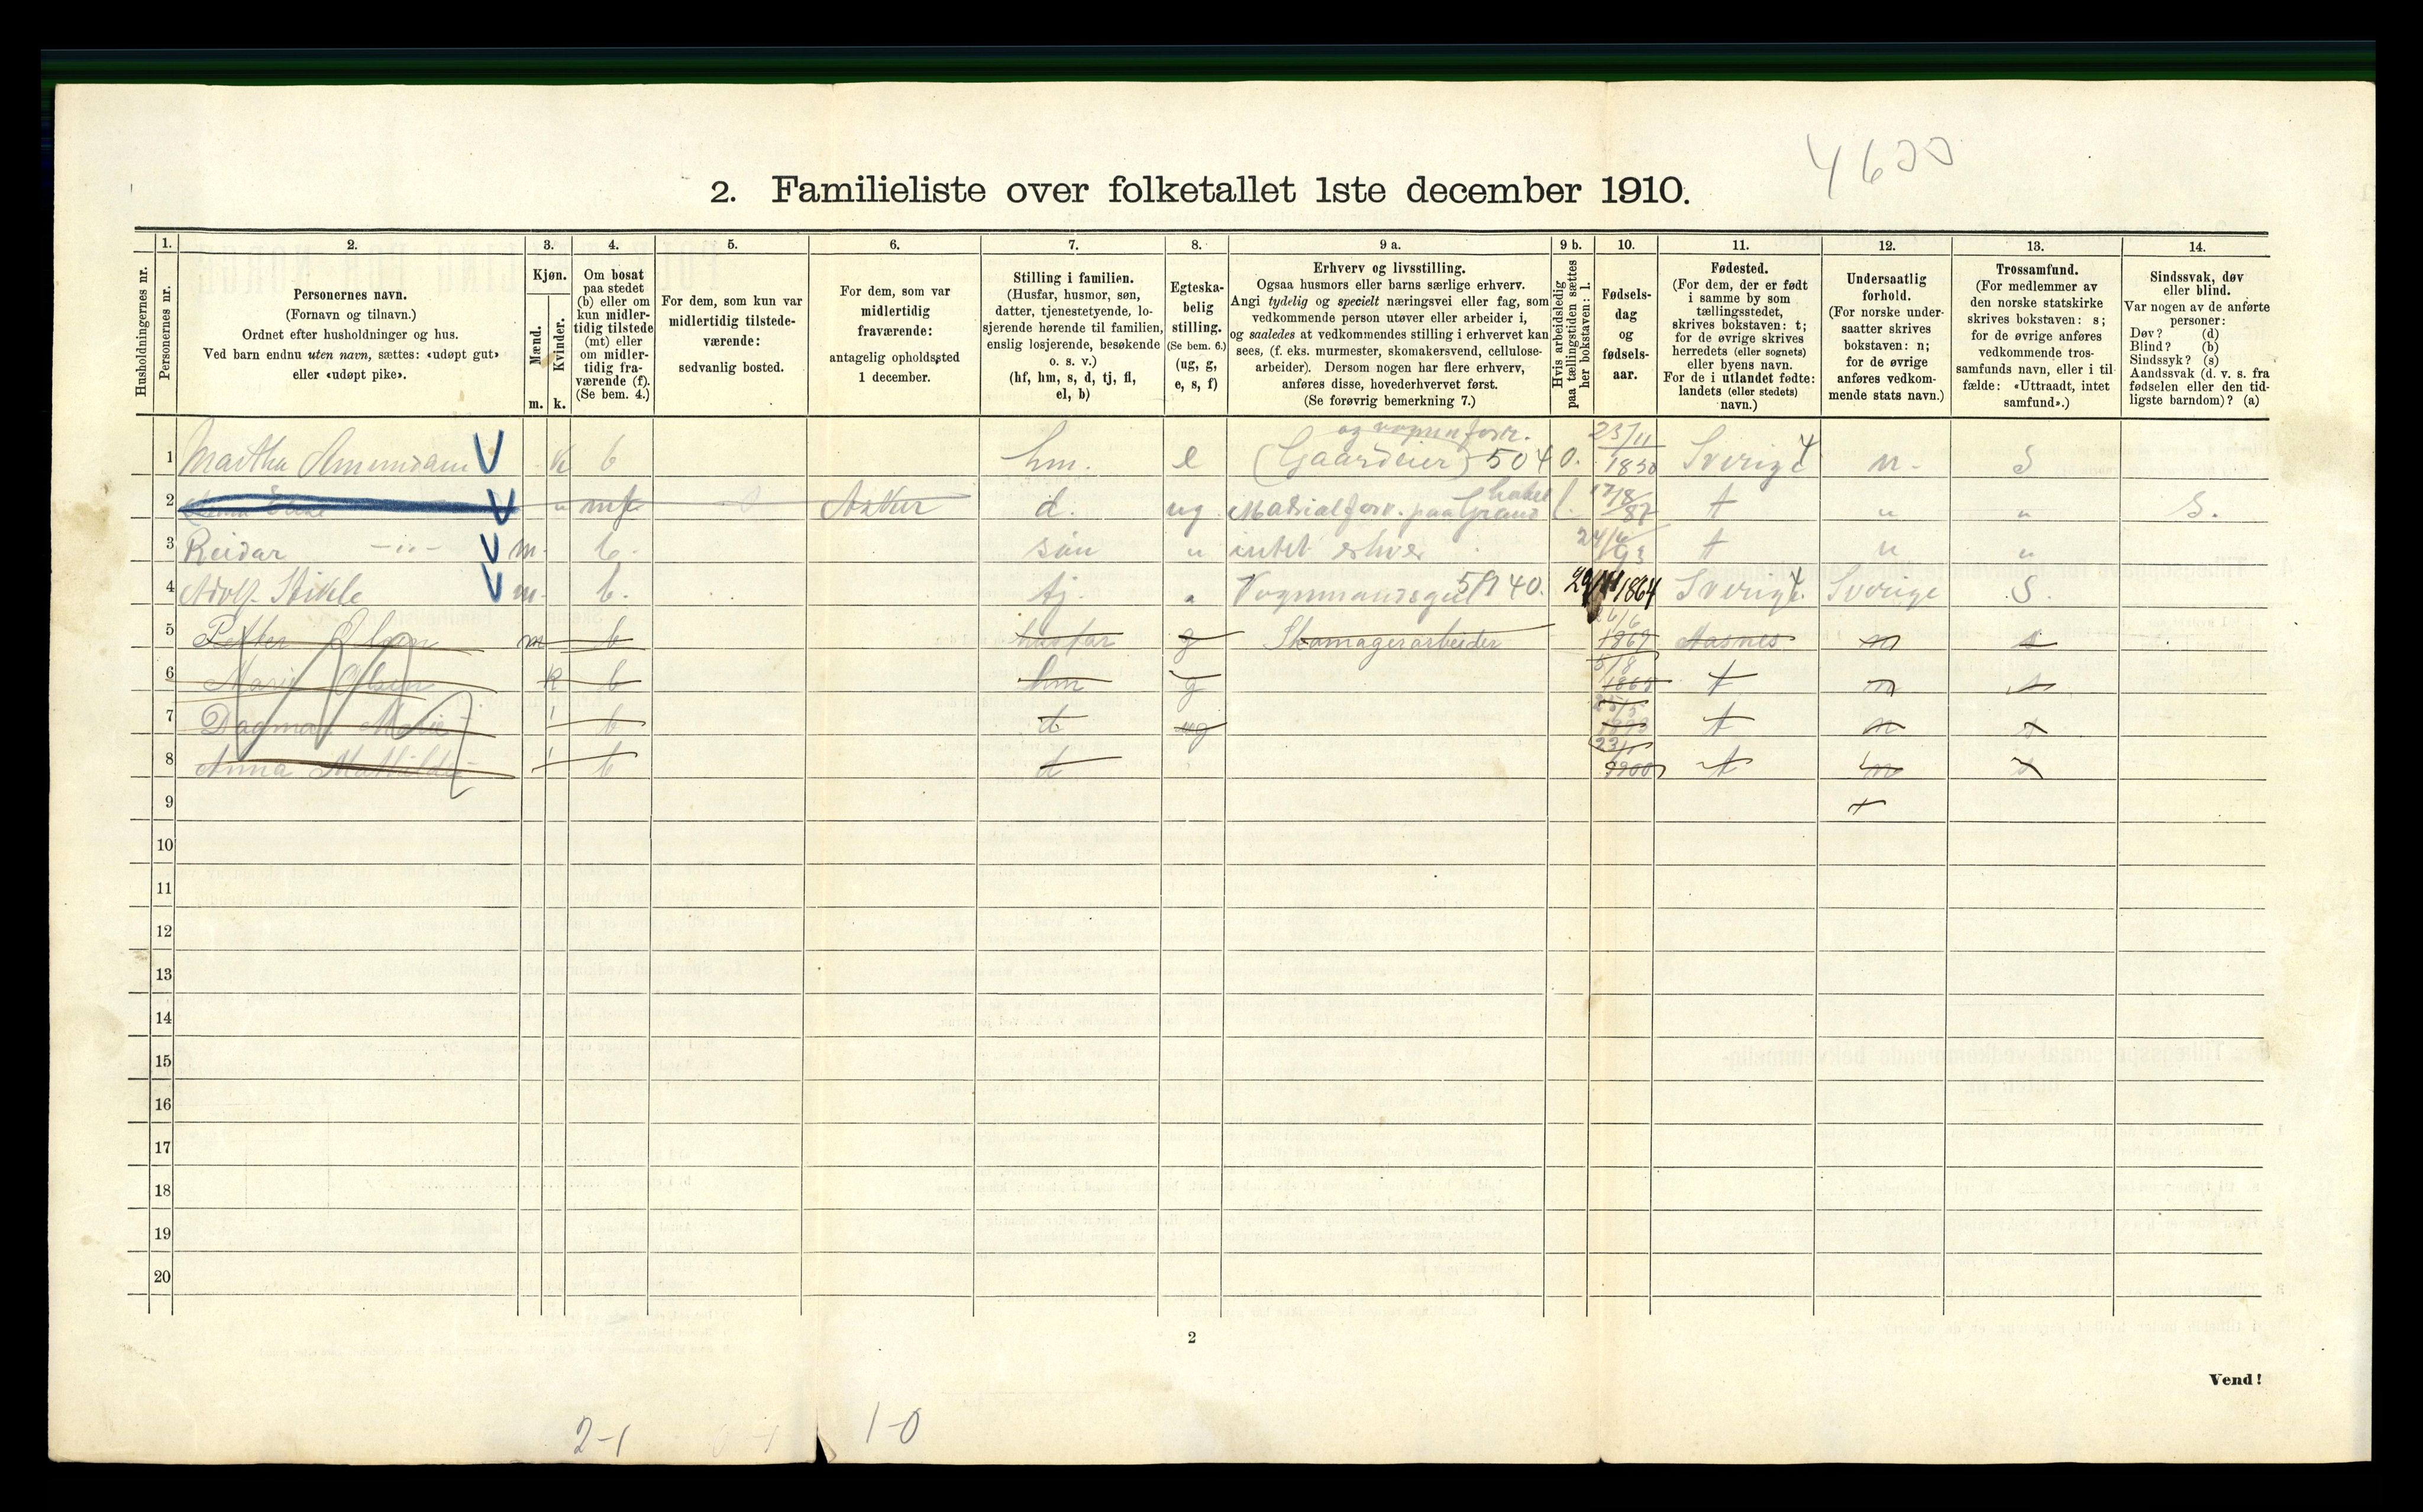 4600
2. Familieliste over folketallet 1ste december 1910.
Husholdningernes nr.
1.
Personernes nr.
2.
Personernes navn.
(Fornavn og tilnavn.)
Ordnet efter husholdninger og hus.
Ved barn endnu uten navn, sættes: «udøpt gut»
eller «udøpt pike».
3.
Kjøn.
Mænd.
Kvinder.
m. k.
4.
Om bosat
paa stedet
(b) eller om
kun midler-
tidig tilstede
(mt) eller
om midler-
tidig fra-
værende (f).
(Se bem. 4.)
5.
For dem, som kun var
midlertidig tilstede-
værende:
sedvanlig bosted.
6.
For dem, som var
midlertidig
fraværende:
antagelig opholdssted
1 december.
7.
Stilling i familien.
(Husfar, husmor, søn,
datter, tjenestetyende, lo-
sjerende hørende til familien,
enslig losjerende, besøkende
o. s. v.)
(hf, hm, s, d, tj, fl,
el, b)
8.
Egteska-
belig
stilling.
(Se bem. 6.)
(ug, g,
e, s, f)
9 a.
Erhverv og livsstilling.
Ogsaa husmors eller barns særlige erhverv.
Angi tydelig og specielt næringsvei eller fag, som
vedkommende person utøver eller arbeider i,
og saaledes at vedkommendes stilling i erhvervet kan
sees, (f. eks. murmester, skomakersvend, cellulose-
arbeider). Dersom nogen har flere erhverv,
anføres disse, hovederhvervet først.
(Se forøvrig bemerkning 7.)
9 b.
Hvis arbeidsledig
paa tællingstiden sættes
her bokstaven: l.
10.
Fødsels-
dag
og
fødsels-
aar.
11.
Fødested.
(For dem, der er født
i samme by som
tællingsstedet,
skrives bokstaven: t;
for de øvrige skrives
herredets (eller sognets)
eller byens navn.
For de i utlandet fødte:
landets (eller stedets)
navn.)
12.
Undersaatlig
forhold.
(For norske under-
saatter skrives
bokstaven: n;
for de øvrige
anføres vedkom-
mende stats navn.)
13.
Trossamfund.
(For medlemmer av
den norske statskirke
skrives bokstaven: s;
for de øvrige anføres
vedkommende tros-
samfunds navn, eller i til-
fælde: «Uttraadt, intet
samfund».)
14.
Sindssvak, døv
eller blind.
Var nogen av de anførte
personer:
Døv? (d)
Blind? (b)
Sindssyk? (s)
Aandssvak (d. v. s. fra
fødselen eller den tid-
ligste barndom)? (a)
1 Martha Amundsen V k b hm. e (Gaardeier) 5040. 23/11 1850 Sverige n. S
2 V d. ug l. 17/8 87 t " " S.
3 Reidar -"- V m. b. søn " intet erhver 93 t " "
4 Adolf V m. b. tj. " 1864 Sverige Sverige S.
5 Petter Olsen m b husfar g Skomagerarbeider 26/6 1867 Aasnes n s
6 Marie Olsen k b hm g 5/8 t n s
7 Dagmar Marie b d ug 1893 t n s
8 Anna Mathilde b d 1900 t n s
9
10
11
12
13
14
15
16
17
18
19
20
2
Vend!
2-1 1-0